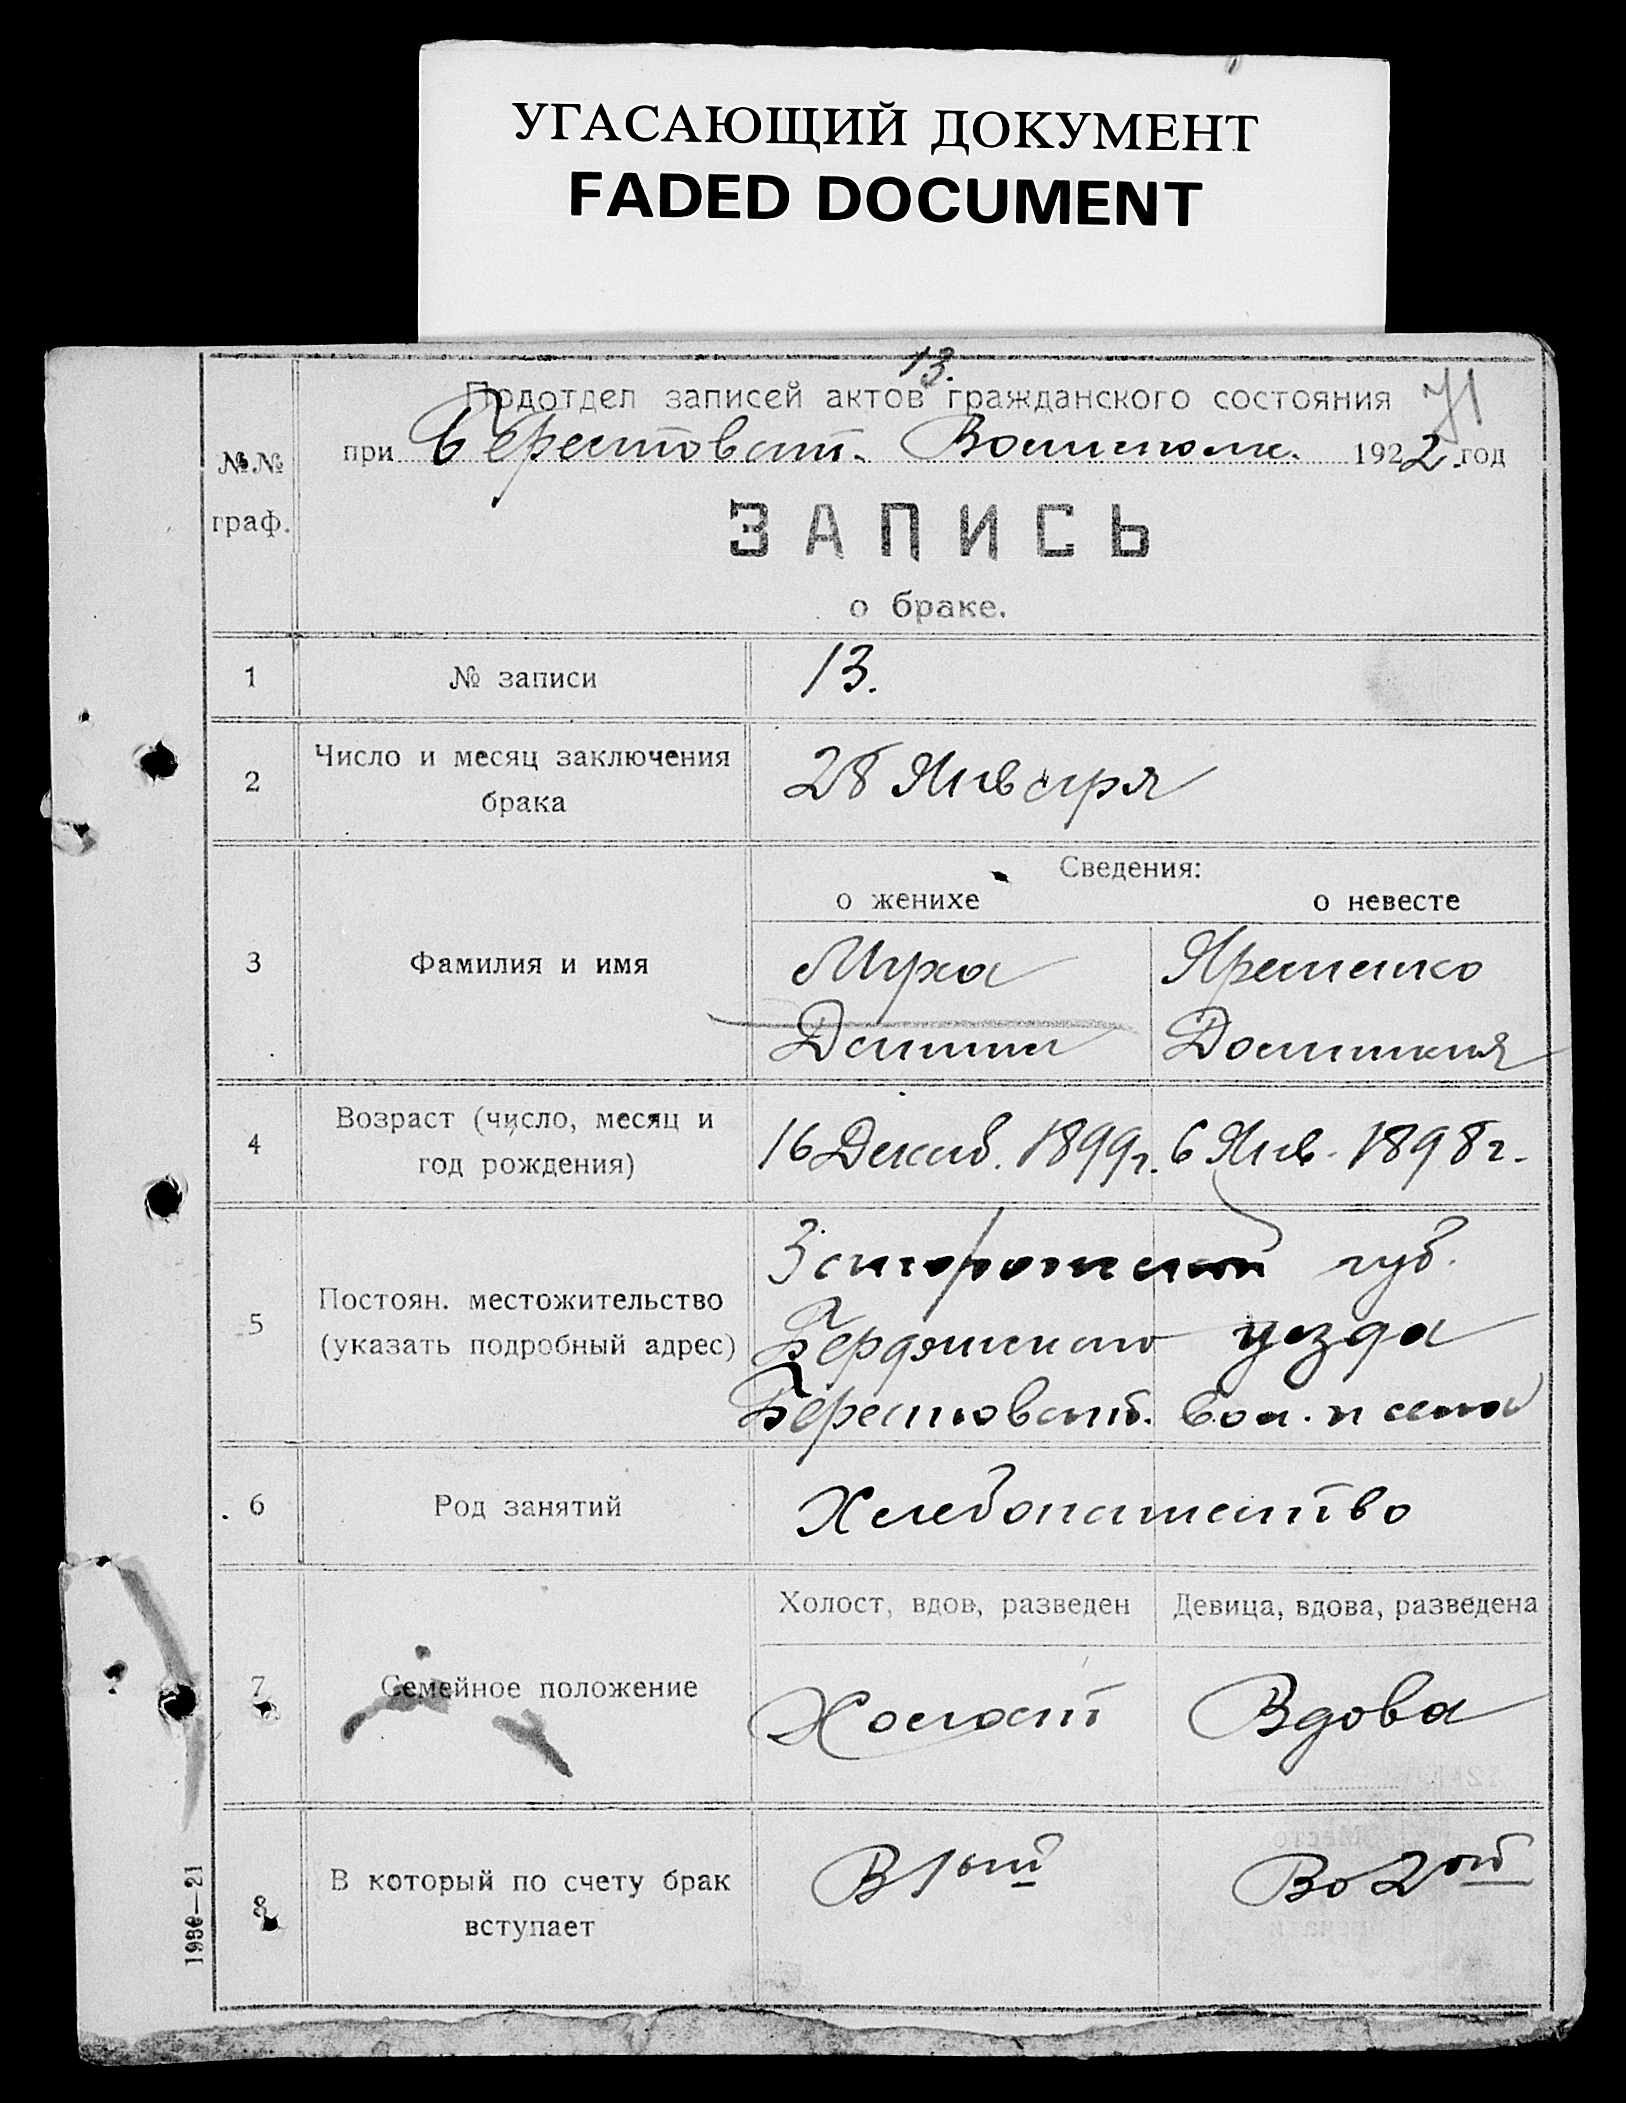 УГАСАЮЩИЙ ДОКУМЕНТ
FADED DOCUMENT
13.
71
Подотдел записей актов гражданского состояния
при Берестоват. Волисполк. 1922 год
№№
граф.
ЗАПИСЬ
о браке.
1 № записи 13.
2 Число и месяц заключения
брака
28 Января
Сведения:
о женихе о невесте
3 Фамилия и имя
Муха Яременко
Данил
4 Возраст (число, месяц и
год рождения)
16 Декаб. 1899г. 6 Янв. 1898г.
5 Постоян. местожительство
(указать подробный адрес)
Запорожской губ.
Бердянского уезда
Берестоват. вол. и села
6 Род занятий Хлебопашество
Холост, вдов, разведен Девица, вдова, разведена
7 Семейное положение
Холост Вдова
8 В который по счету брак
вступает
В 1ый Во 2ой
1980—21